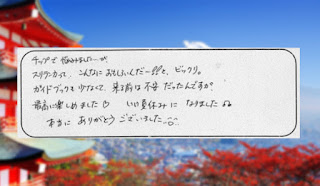 チップで悩みました…が
スリランカって、こんなにおもしろいんだー!!と、ビックリ。
ガイドブックも少なくて、来る前は不安だったんですが
最高に楽しめました♡ いい夏休みになりました♪♪
本当にありがとうございました